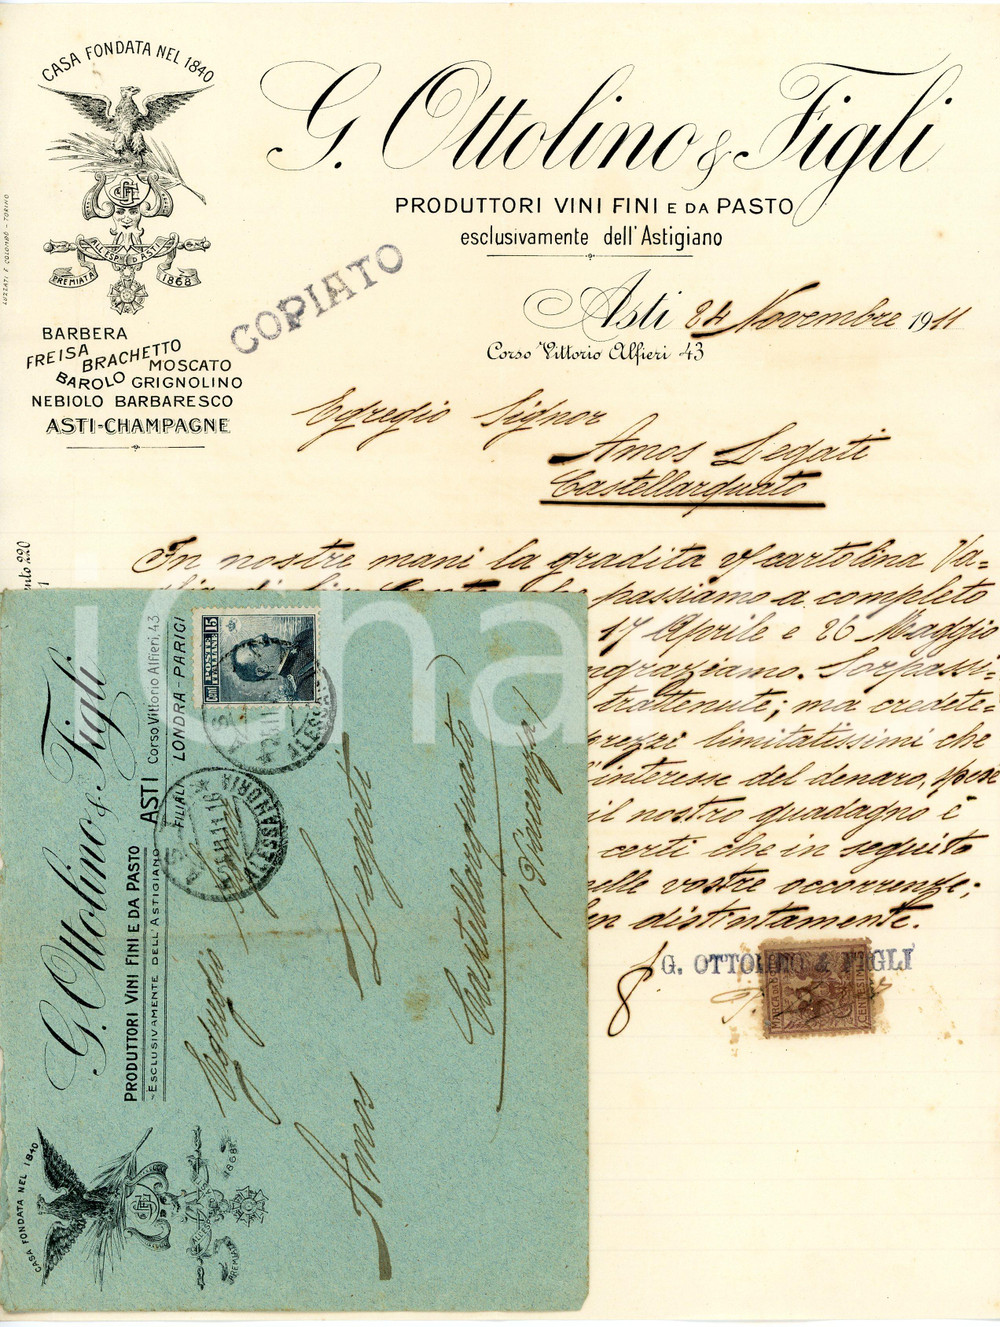 CASA FONDATA NEL 1840
G. Ottolino & Figli
PRODUTTORI VINI FINI E DA PASTO
esclusivamente dell'Astigiano
ALL'ESP. D'ASTI
PREMIATA 1868
LUZZATI E COLOMBO - TORINO
COPIATO
Asti 24 Novembre 1911
Corso Vittorio Alfieri 43
BARBERA
FREISA BRACHETTO
MOSCATO
BAROLO GRIGNOLINO
NEBIOLO BARBARESCO
ASTI-CHAMPAGNE
Egregio Signor
Amos Legati
Castellarquato
In nostre mani la gradita cartolina Va-
passiamo a completo
17 Aprile e 26 Maggio
ngraziamo. Sorpassi-
trattenute; ma credete-
prezzi limitatissimi che
l'interesse del denaro,
il nostro guadagno è
certi che in seguito
nelle vostre occorrenze;
en distintamente.
G. OTTOLINO & FIGLI
MARCA DA BOLLO
G. Ottolino & Figli
PRODUTTORI VINI FINI E DA PASTO
-ESCLUSIVAMENTE DELL'ASTIGIANO-
ASTI Corso Vittorio Alfieri, 43
FILIALI LONDRA-PARIGI
CASA FONDATA NEL 1840
PREMIATA 1868
POSTE ITALIANE
Cent 15
ALESSANDRIA
Egregio
Amos Legati
Castellarquato
(Piacenza)
iCha